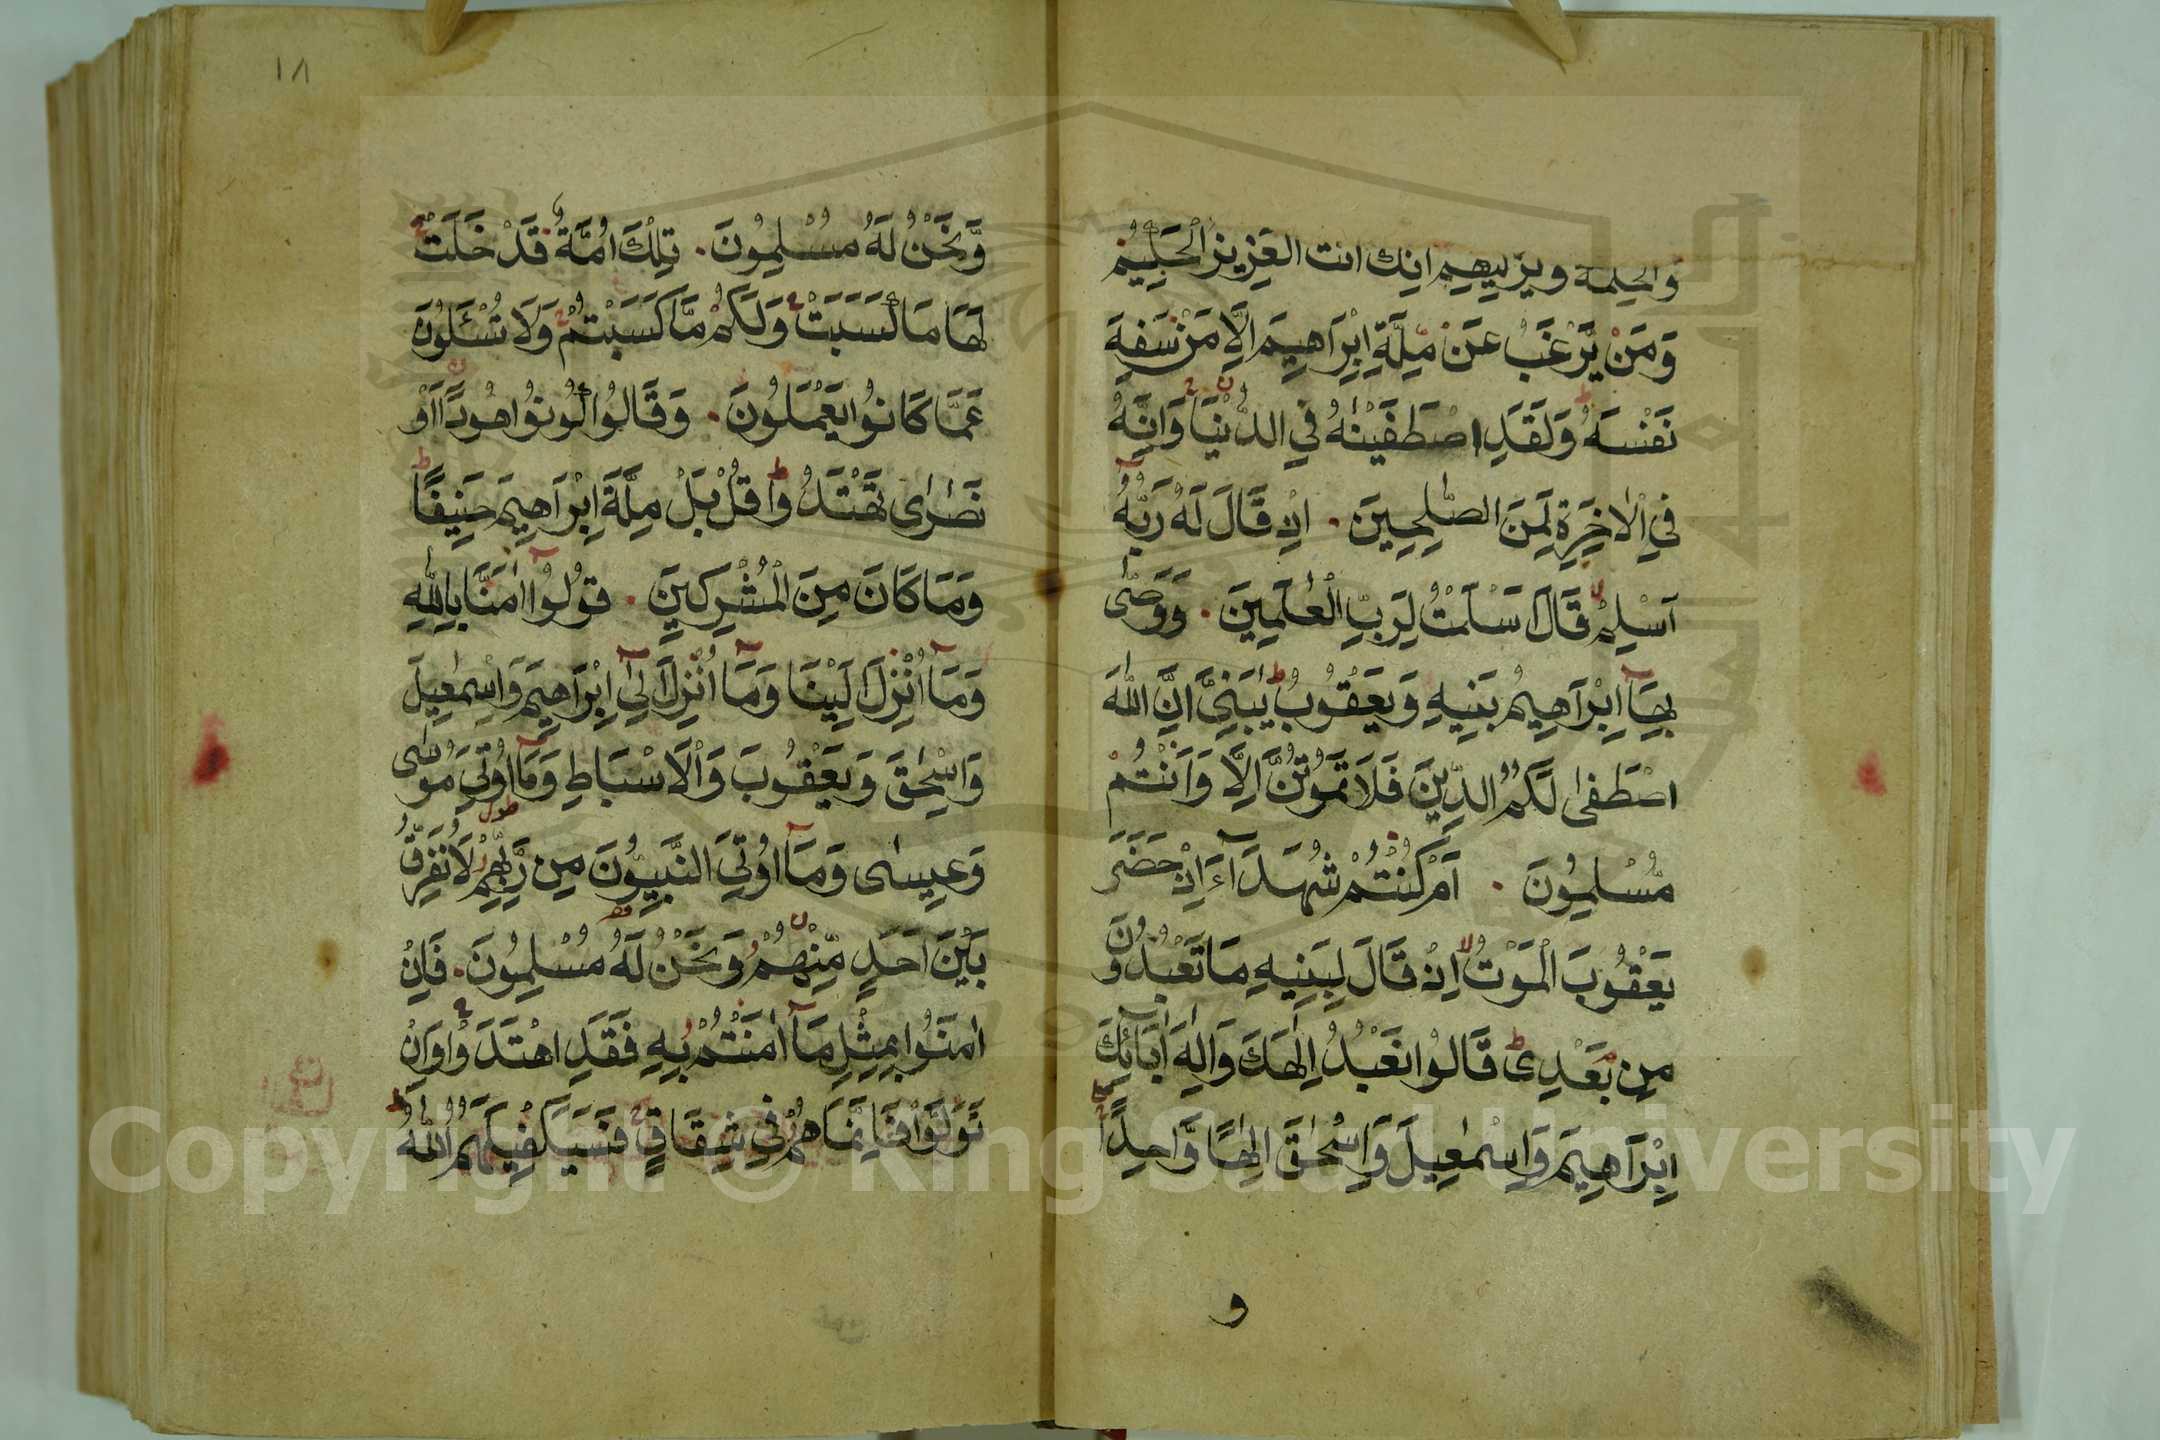 والحكمة ويزكيهم انك انت العَزِيزُ الْحَكِيْمُ
وَمَنْ يَّرْغَبُ عَنْ مِّلَّةِ اِبْرَاهِيمَ اِلَّا مَنْ سَفِهَ
نَفْسَهُ وَلَقَدِ اصْطَفَيْنٰهُ فِي الدُّنْيَا وَاِنَّهُ
فِي الْاٰخِرَةِ لَمِنَ الصّٰلِحِينَ . اِذْ قَالَ لَهُ رَبُّهُ
اَسْلِمْ قَالَ اَسْلَمْتُ لِرَبِّ الْعٰلَمِينَ . وَوَصّٰى
بِهَا اِبْرَاهِيمُ بَنِيهِ وَيَعْقُوبُ يٰبَنِيَّ اِنَّ اللّٰهَ
اصْطَفٰى لَكُمُ الدِّينَ فَلَا تَمُوتُنَّ اِلَّا وَاَنْتُمْ
مُّسْلِمُونَ . اَمْ كُنْتُمْ شُهَدَآءَ اِذْ حَضَرَ
يَعْقُوبَ الْمَوْتُ اِذْ قَالَ لِبَنِيهِ مَا تَعْبُدُونَ
مِنْ بَعْدِى قَالُوا نَعْبُدُ اِلٰهَكَ وَاِلٰهَ اٰبَآئِكَ
اِبْرَاهِيمَ وَاِسْمٰعِيلَ وَاِسْحٰقَ اِلٰهًا وَّاحِدًا
و
١٨
وَّنَحْنُ لَهُ مُسْلِمُونَ . تِلْكَ اُمَّةٌ قَدْ خَلَتْ
لَهَا مَا كَسَبَتْ وَلَكُمْ مَّا كَسَبْتُمْ وَلَا تُسْـَٔلُونَ
عَمَّا كَانُوا يَعْمَلُونَ . وَقَالُوا كُونُوا هُودًا اَوْ
نَصٰرٰى تَهْتَدُوا قُلْ بَلْ مِلَّةَ اِبْرَاهِيمَ حَنِيفًا
وَمَا كَانَ مِنَ الْمُشْرِكِينَ . قُولُوا اٰمَنَّا بِاللّٰهِ
وَمَآ اُنْزِلَ اِلَيْنَا وَمَآ اُنْزِلَ اِلٰٓى اِبْرَاهِيمَ وَاِسْمٰعِيلَ
وَاِسْحٰقَ وَيَعْقُوبَ وَالْاَسْبَاطِ وَمَآ اُوتِيَ مُوسٰى
وَعِيسٰى وَمَآ اُوتِيَ النَّبِيُّونَ مِنْ رَّبِّهِمْ لَا نُفَرِّقُ
بَيْنَ اَحَدٍ مِّنْهُمْ وَنَحْنُ لَهُ مُسْلِمُونَ . فَاِنْ
اٰمَنُوا بِمِثْلِ مَآ اٰمَنْتُمْ بِهِ فَقَدِ اهْتَدَوْا وَاِنْ
تَوَلَّوْا فَاِنَّمَا هُمْ فِي شِقَاقٍ فَسَيَكْفِيكَهُمُ اللّٰهُ
Copyright © King Saud University